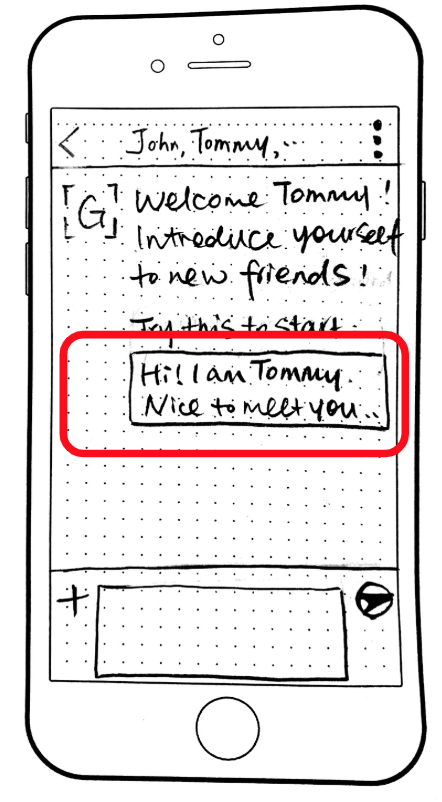 John, Tommy, ...
[G] Welcome Tommy!
Introduce yourself
to new friends!
Try this to start
Hi! I am Tommy.
Nice to meet you...